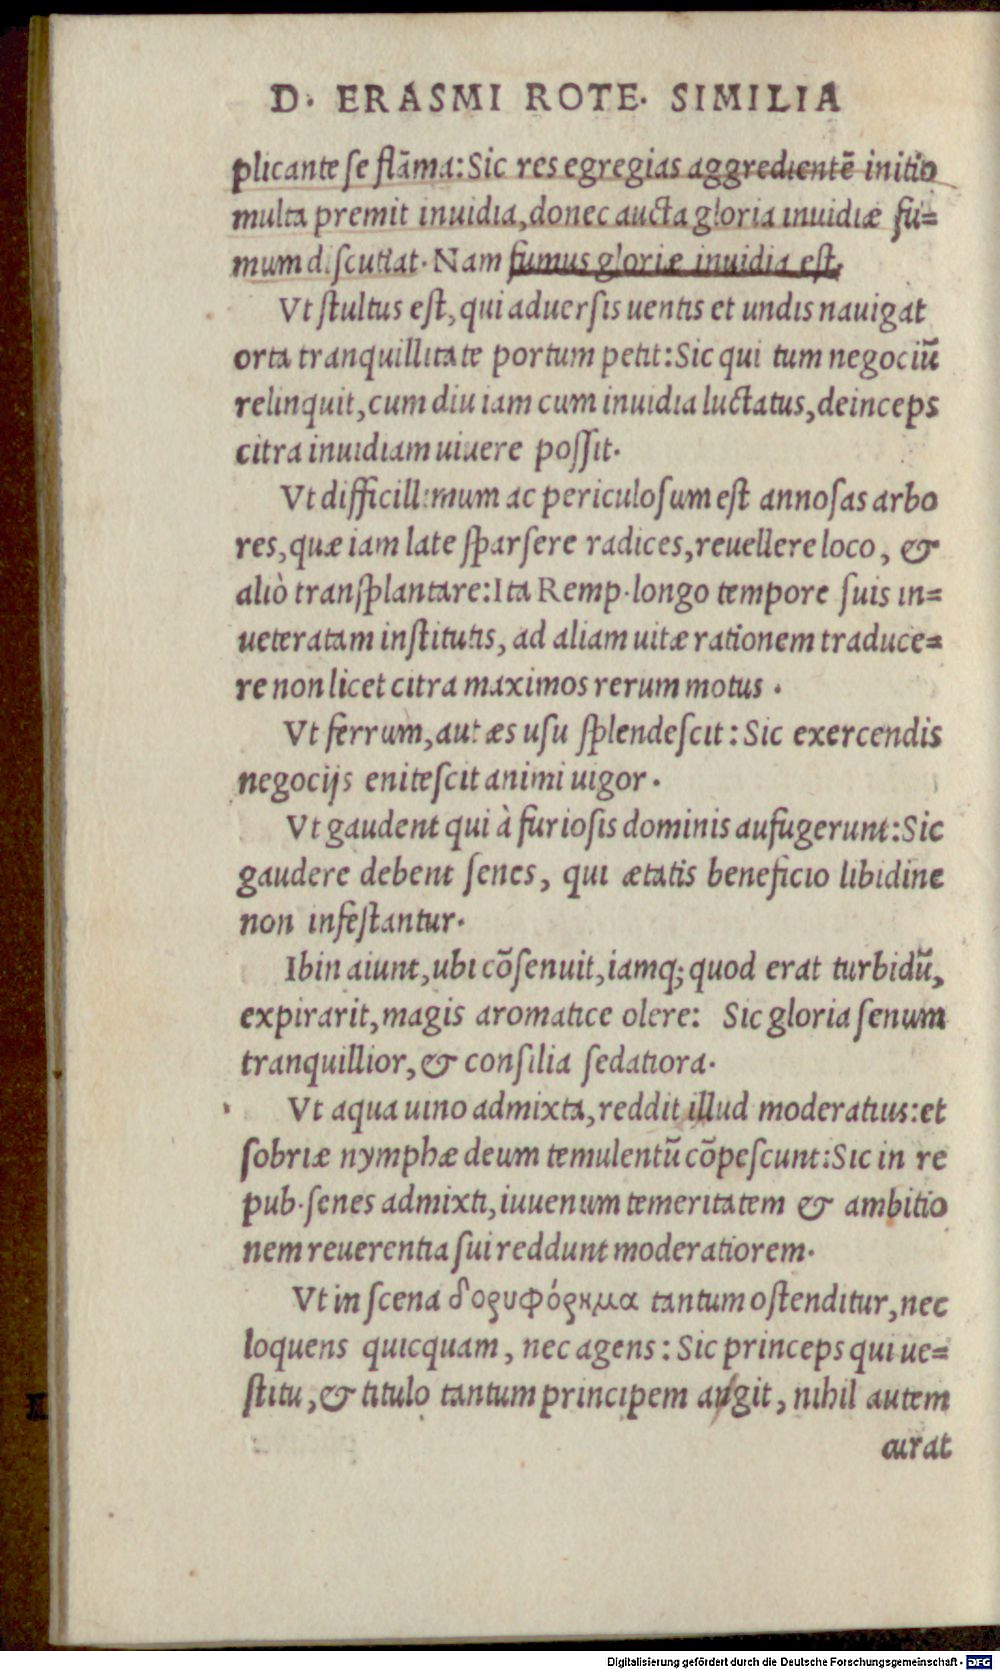 D. ERASMI ROTE. SIMILIA
plicante se flãma: Sic res egregias aggredientẽ initio
multa premit inuidia, donec aucta gloria inuidiæ fu=
mum discutiat. Nam fumus gloriæ inuidia est.
Vt stultus est, qui aduersis uentis et undis nauigat
orta tranquillitate portum petit: Sic qui tum negociũ
relinquit, cum diu iam cum inuidia luctatus, deinceps
citra inuidiam uiuere possit.
Vt difficillimum ac periculosum est annosas arbo
res, quæ iam late sparsere radices, reuellere loco, &
aliò transplantare: Ita Remp. longo tempore suis in=
ueteratam institutis, ad aliam uitæ rationem traduce=
re non licet citra maximos rerum motus .
Vt ferrum, aut æs usu splendescit: Sic exercendis
negocijs enitescit animi uigor .
Vt gaudent qui à furiosis dominis aufugerunt: Sic
gaudere debent senes, qui ætatis beneficio libidine
non infestantur.
Ibin aiunt, ubi cõsenuit, iamq; quod erat turbidũ,
expirarit, magis aromatice olere: Sic gloria senum
tranquillior, & consilia sedatiora.
Vt aqua uino admixta, reddit illud moderatius: et
sobriæ nymphæ deum temulentũ cõpescunt: Sic in re
pub. senes admixti, iuuenum temeritatem & ambitio
nem reuerentia sui reddunt moderatiorem.
Vt in scena δορυφόρημα tantum ostenditur, nec
loquens quicquam, nec agens: Sic princeps qui ue=
stitu, & titulo tantum principem augit, nihil autem
curat
Digitalisierung gefördert durch die Deutsche Forschungsgemeinschaft - DFG